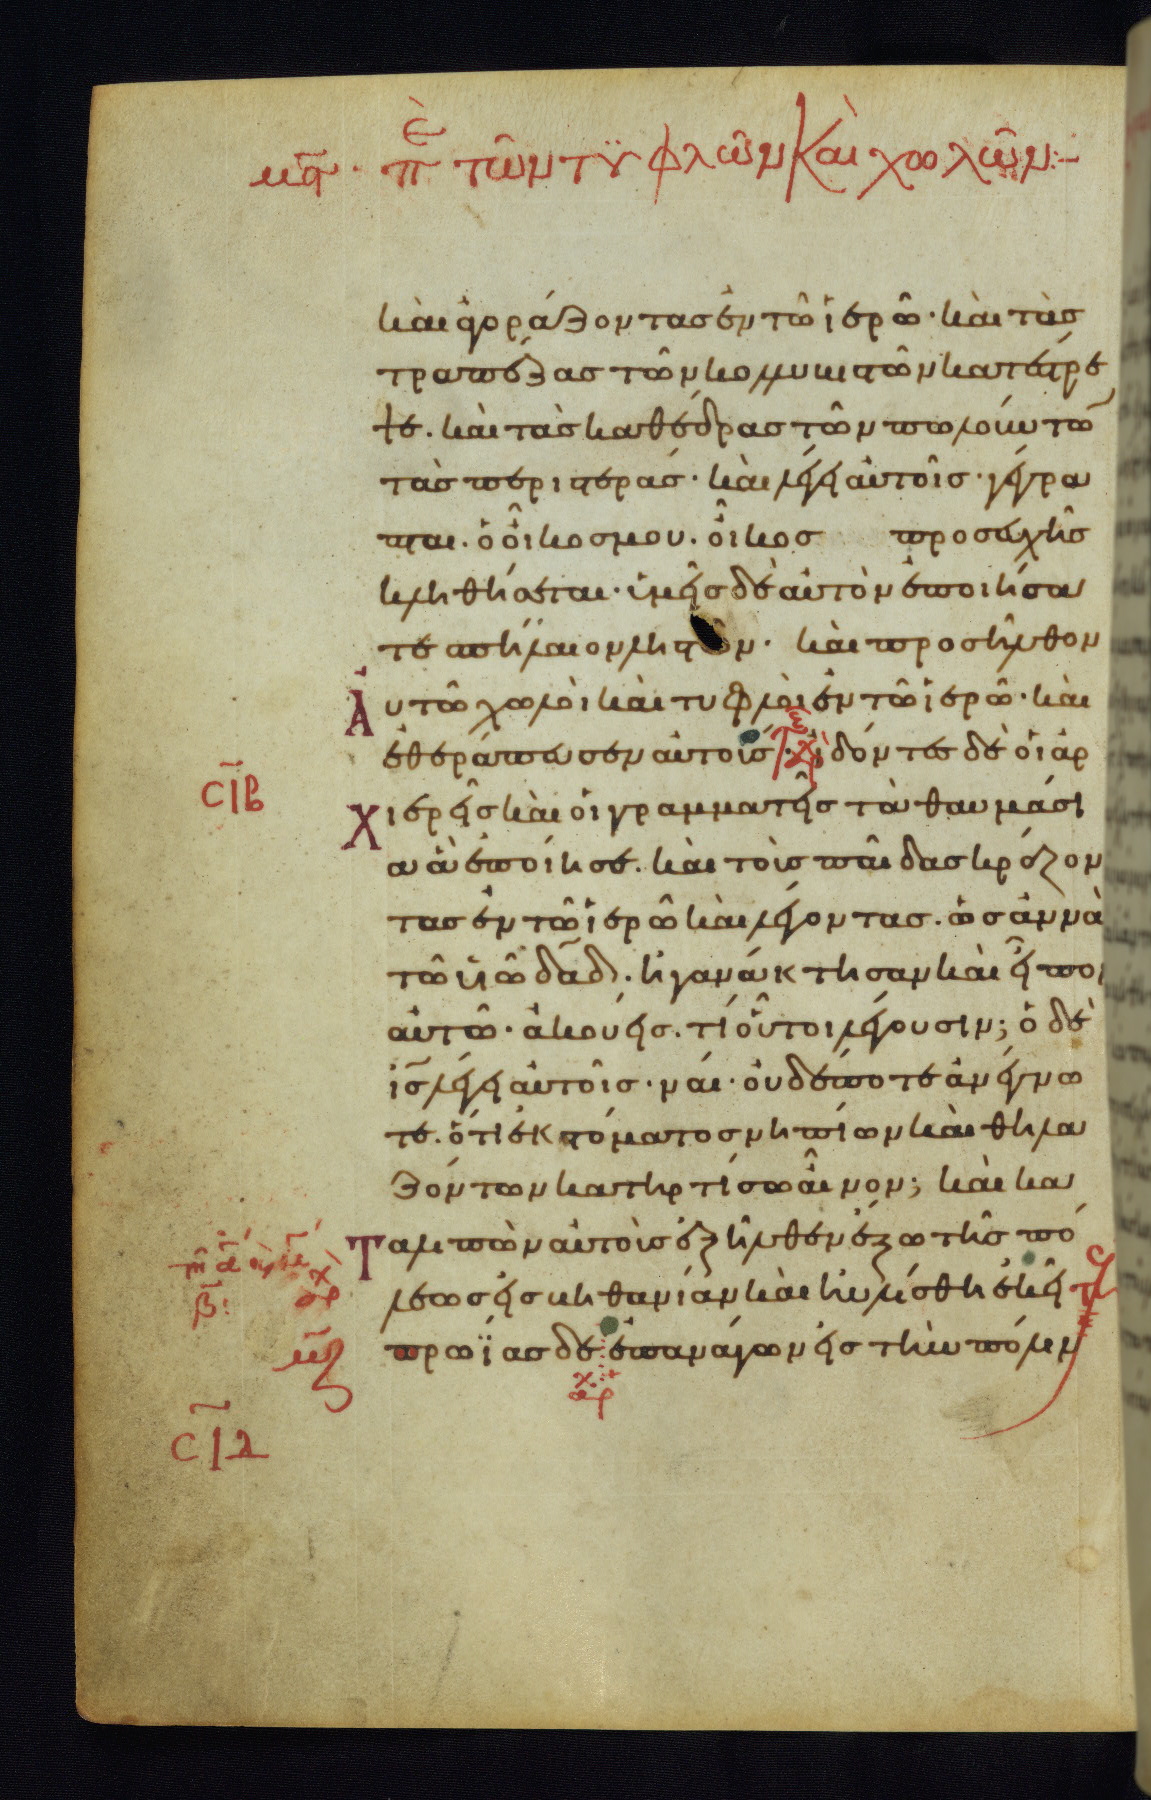 μϛ· περὶ τῶν τυφλῶν καὶ χωλῶν:–
καὶ ἀγοράζοντας ἐν τῶ ἱερῶ· καὶ τὰς
τραπέζας τῶν κολλυβιστῶν κατέστρε
ψε. καὶ τὰς καθέδρας τῶν πωλούντω̅
τὰς περιστεράς· καὶ λέγει αὐτοῖς· γέγρα
πται. ὁ οἶκος μου. οἶκος προσευχῆς
κληθήσεται· ὑμεῖς δὲ αὐτὸν ἐποιήσα
τε σπήλαιον ληστῶν· καὶ προσῆλθον
Αὐτῶ χωλοὶ καὶ τυφλοὶ ἐν τῶ ἱερῶ· καὶ
ἐθεράπευσεν αὐτούς· ἰδόντες δὲ οἱ ἀρ
σιβ
Χιερεῖς καὶ οἱ γραμματεῖς τὰ θαυμάσι
α ἃ ἐποίησε. καὶ τοὺς παῖδας κράζον
τας ἐν τῶ ἱερῶ καὶ λέγοντας. ὡσαννὰ
τῶ υἱῶ δα̅δ. ἠγανάκτησαν καὶ εἶπον
αὐτῶ· ἀκούεις. τί οὗτοι λέγουσιν; ὁ δὲ
ι̅ς λέγει αὐτοῖς· ναί· οὐδέποτε ἀνέγνω
τε. ὅτι ἐκ στόματος νηπίων καὶ θηλα
ζόντων κατηρτίσω αἶνον; καὶ κα
Ταλιπὼν αὐτοὺς ἐξῆλθεν ἔξω τῆς πό
λεως εἰς βηθανίαν καὶ ηὐλίσθη ἐκεῖ
πρωΐας δὲ ἐπανάγων εἰς τὴν πόλιν
μζ
ἀρχ
σιδ